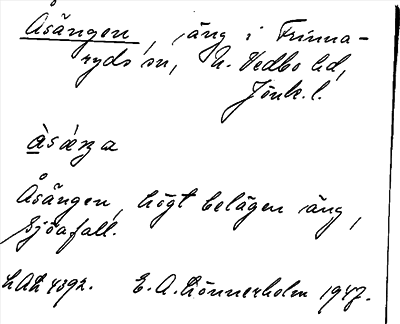 Åsängen, äng i Frinna-
ryds sn, N. Vedbo hd,
Jönk. l.
àsǽŋa
Åsängen, högt belägen äng,
Sjöafall.
LAL 4392. E. A. Lönnerholm 1947.